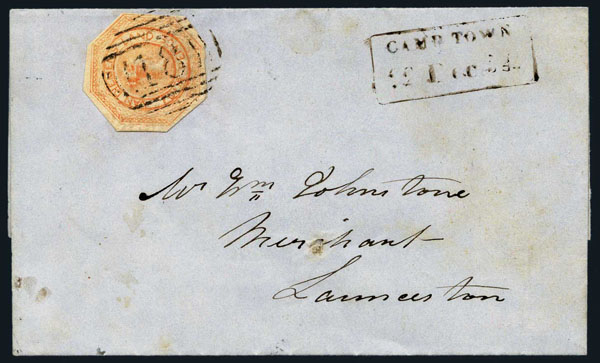 CAMP TOWN
Mr Wm Johnstone
Merchant
Launceston